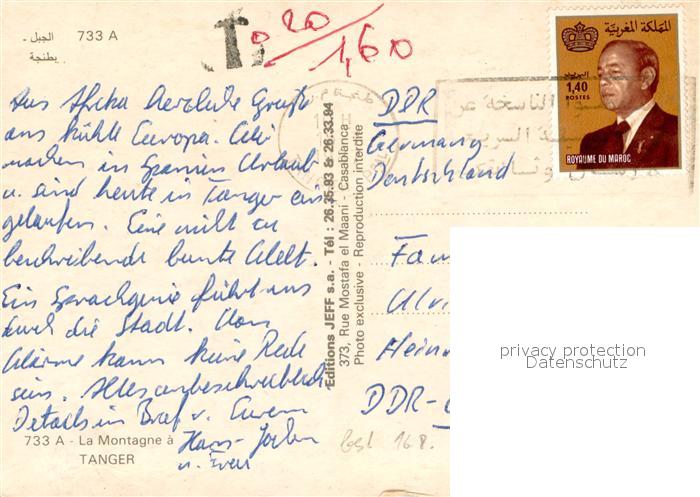 الجبل 733 A
بطنجة
T 0,20/1,60
المملكة المغربية
البريد
1,40
POSTES
ROYAUME DU MAROC
Aus Afrika herzliche Grüße
ans kühle Europa. Wir
machen in Spanien Urlaub
u. sind heute in Tanger ein
gelaufen. Eine nicht zu
beschreibende bunte Welt.
Ein Sprachgenie führt uns
durch die Stadt. Von
Wärme kann keine Rede
sein. Alles unbeschreiblich
Details im Brief v. Eurem
Hans-Jochen
u.
733 A - La Montagne à
TANGER
Editions JEFF s.a. - Tél : 26.35.83 & 26.33.84
373, Rue Mostafa el Maani - Casablanca
Photo exclusive - Reproduction interdite
DDR
Germany
Deutschland
Fam
Ulri
Hein
DDR-
16 8.
privacy protection
Datenschutz